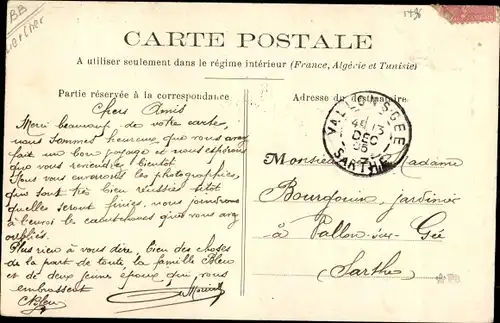 BB
1496
CARTE POSTALE
A utiliser seulement dans le régime intérieur (France, Algérie et Tunisie)
Partie réservée à la correspondance
Adresse du destinataire
Chers Amis
Merci beaucoup de votre carte
nous sommes heureux que vous avez
fait un bon voyage et nous espérons
que vous reviendrez bientôt
Nous vous enverrons les photographies
qui sont très bien réussies sitôt
quelles seront finies, nous joindrons
à l'envoi les que vous avez
oubliés.
Plus rien à vous dire, bien des choses
de la part de toute la famille Bleu
et de deux jeunes époux qui, vous
embrassent
Bleu
VALLON S GÉE
13
DEC
SARTHE
Monsieur Madame
Bourdoun jardinier
à Vallon-sur-Gée
(Sarthe)